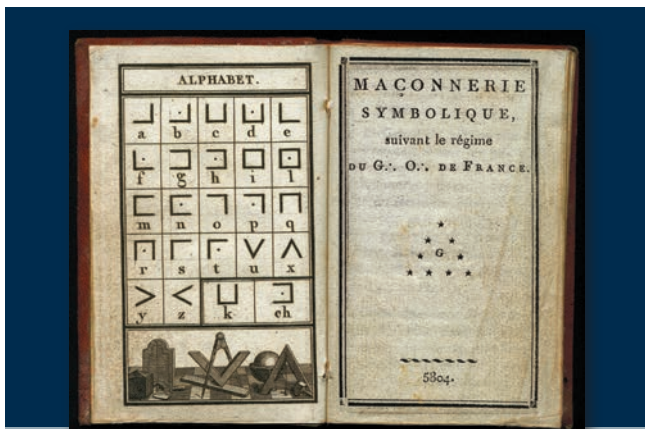 ALPHABET.
a b c d e
f g h i l
m n o p q
r s t u x
y z k ch
MAÇONNERIE
SYMBOLIQUE,
suivant le régime
DU G∴ O∴ DE FRANCE.
G
5804.